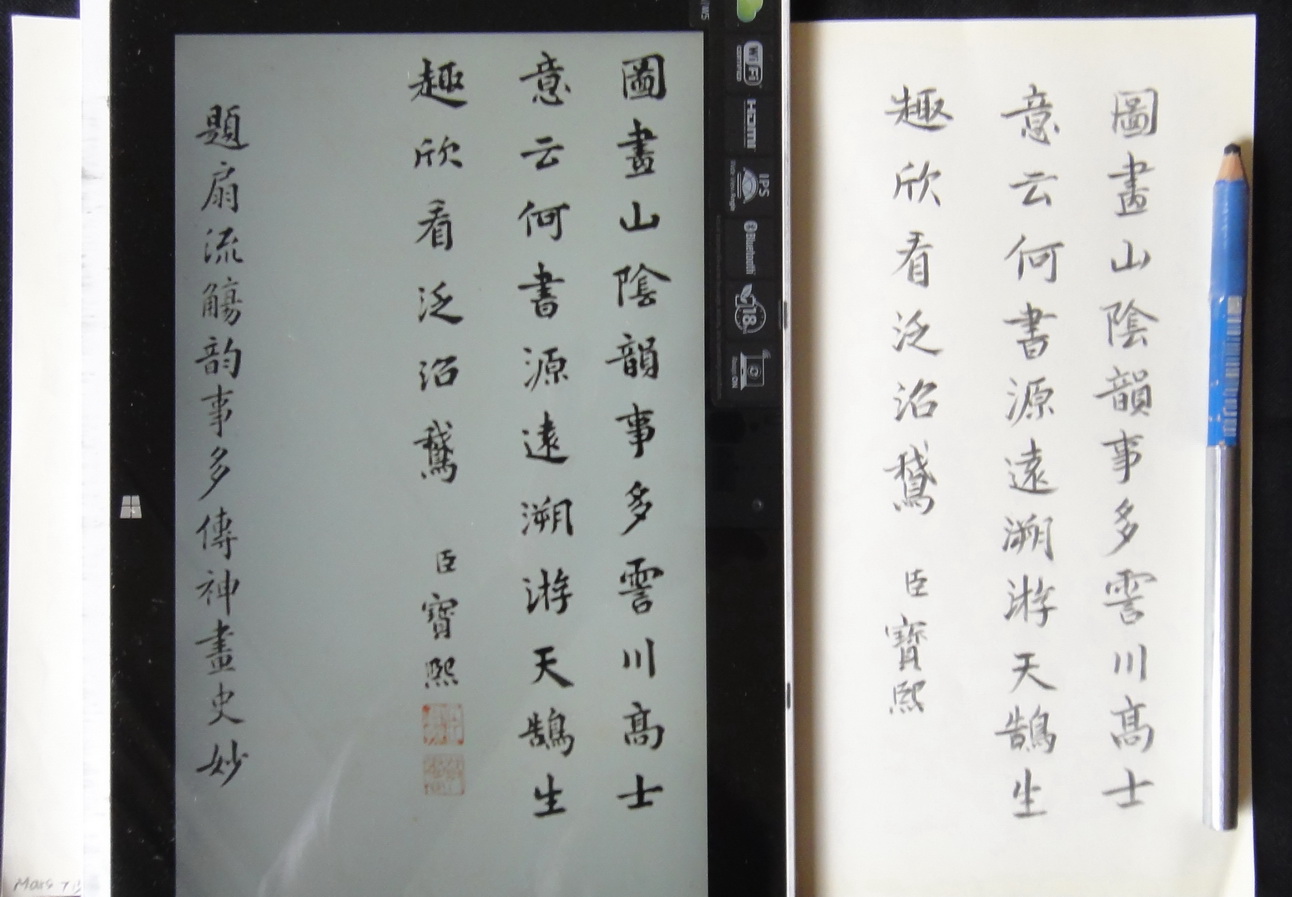 圖畫山陰韻事多霅川髙士
意云何書源遠溯游天鵠生
趣欣看泛沼鵞
臣寶熙
題扇流觴韵事多傳神畫史妙
WiFi
HDMI
IPS
Bluetooth
18
圖畫山陰韻事多霅川髙士
意云何書源遠溯游天鵠生
趣欣看泛沼鵞
臣寶熙
Mars